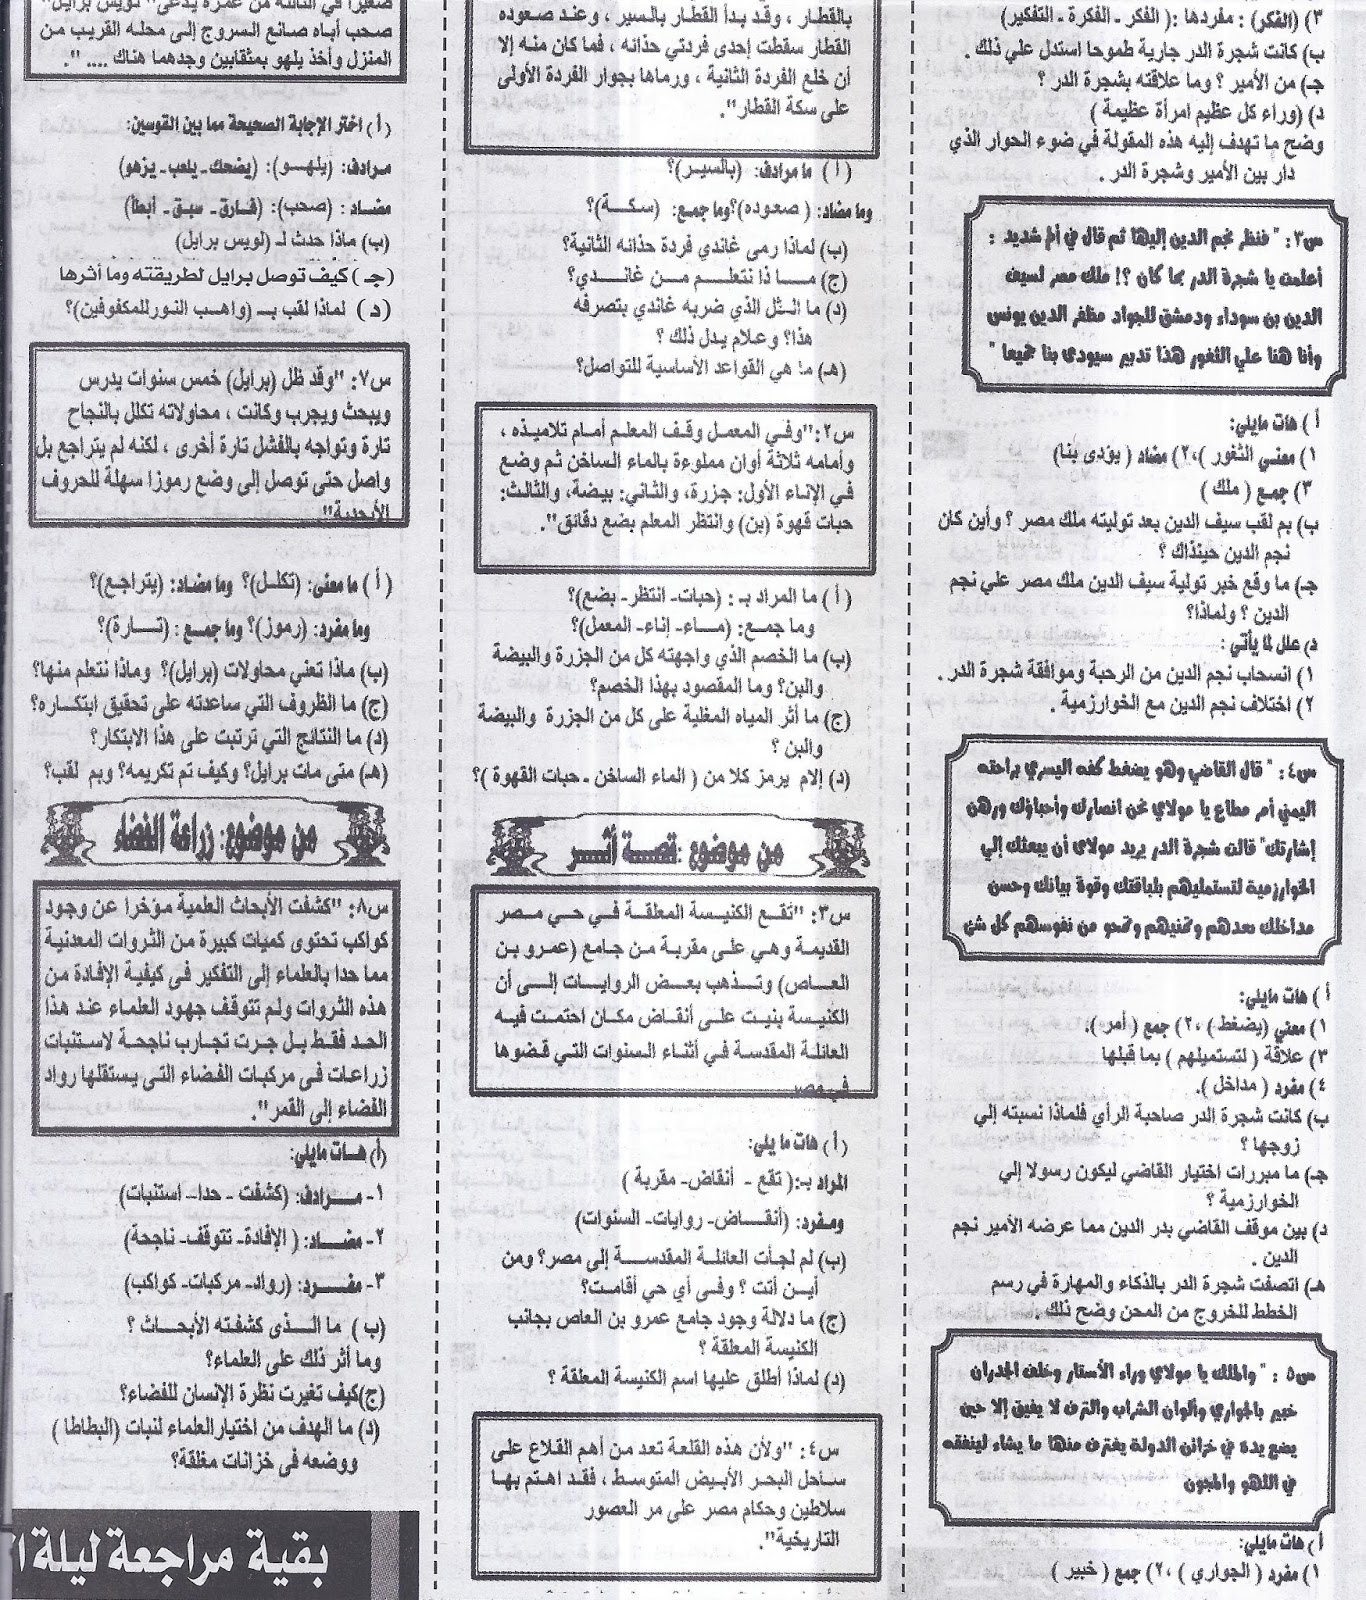 ٣) (الفكر) : مفردها :( الفكر - الفكرة - التفكير)
ب) كانت شجرة الدر جارية طموحا استدل علي ذلك .
جـ) من الأمير ؟ وما علاقته بشجرة الدر ؟
د) (وراء كل عظيم امرأة عظيمة )
وضح ما تهدف إليه هذه المقولة في ضوء الحوار الذي
دار بين الأمير وشجرة الدر .
س٣: " فنظر نجم الدين إليها ثم قال في ألم شديد :
أعلمت يا شجرة الدر بما كان ؟! ملك مصر لسيف
الدين بن سوداء ودمشق للجواد مظفر الدين يونس
وأنا هنا علي الثغور هذا تدبير سيودى بنا جميعا "
أ ) هات مايلي:
١) معني الثغور )٢٠) مضاد ( يؤدى بنا)
٣) جمع ( ملك )
ب) بم لقب سيف الدين بعد توليته ملك مصر ؟ وأين كان
نجم الدين حينذاك ؟
جـ) ما وقع خبر تولية سيف الدين ملك مصر علي نجم
الدين ؟ ولماذا؟
د) علل لما يأتي :
١) انسحاب نجم الدين من الرحبة وموافقة شجرة الدر .
٢) اختلاف نجم الدين مع الخوارزمية .
س٤: " قال القاضي وهو يضغط كفه اليسري براحته
اليمني أمر مطاع يا مولاي نحن انصارك وأحباؤك ورهن
إشارتك" قالت شجرة الدر يريد مولاى أن يبعثك إلي
الخوارزمية لتستمليهم بلباقتك وقوة بيانك وحسن
مداخلك تعدهم وتمنيهم وتمحو من نفوسهم كل شئ
أ ) هات مايلي:
١) معني (يضغط) ٢٠) جمع ( أمر ).
٣) علاقة ( لتستميلهم ) بما قبلها
٤) مفرد ( مداخل ).
ب) كانت شجرة الدر صاحبة الرأي فلماذا نسبته إلي
زوجها ؟
جـ) ما مبررات اختيار القاضي ليكون رسولا إلي
الخوارزمية ؟
د) بين موقف القاضي بدر الدين مما عرضه الأمير نجم
الدين .
هـ) اتصفت شجرة الدر بالذكاء والمهارة في رسم
الخطط للخروج من المحن وضح ذلك .
س٥ : " والملك يا مولاي وراء الأستار وخلف الجدران
خبير بالجواري وألوان الشراب والترف لا يفيق إلا حين
يضع يده في خزائن الدولة يغترف منها ما يشاء لينفقه
في اللهو والمجون
أ ) هات مايلي:
١) مفرد ( الجواري ) ٢٠) جمع ( خبير )
بالقطار ، وقد بدأ القطار بالسير ، وعند صعوده
القطار سقطت إحدى فردتي حذائه ، فما كان منه إلا
أن خلع الفردة الثانية ، ورماها بجوار الفردة الأولى
على سكة القطار".
( أ ) ما مرادف: (بالسير)؟
وما مضاد: ( صعوده)؟وما جمع: (سكة)؟
(ب) لماذا رمى غاندي فردة حذائه الثانية؟
(ج) ماذا نتعلم من غاندي؟
(د) ما المثل الذي ضربه غاندي بتصرفه
هذا؟ وعلام يدل ذلك ؟
(هـ) ما هي القواعد الأساسية للتواصل؟
س٢:"وفي المعمل وقف المعلم أمام تلاميذه ،
وأمامه ثلاثة أوان مملوءة بالماء الساخن ثم وضع
في الإناء الأول: جزرة، والثاني: بيضة، والثالث:
حبات قهوة (بن) وانتظر المعلم بضع دقائق".
( أ ) ما المراد بـ : (حبات- انتظر- بضع)؟
وما جمع: (ماء- إناء- المعمل)؟
(ب) ما الخصم الذي واجهته كل من الجزرة والبيضة
والبن؟ وما المقصود بهذا الخصم؟
(ج) ما أثر المياه المغلية على كل من الجزرة والبيضة
والبن ؟
(د) إلام يرمز كلا من ( الماء الساخن - حبات القهوة )؟
من موضوع :قصة أثر
س٣: "تقع الكنيسة المعلقة في حي مصر
القديمة وهي على مقربة من جامع (عمرو بن
العاص) وتذهب بعض الروايات إلى أن
الكنيسة بنيت على أنقاض مكان احتمت فيه
العائلة المقدسة في أثناء السنوات التي قضوها
في مصر
( أ ) هات ما يلي:
المراد بـ:( تقع - أنقاض- مقربة )
ومفرد: (أنقاض- روايات- السنوات)
(ب) لم لجأت العائلة المقدسة إلى مصر؟ ومن
أين أتت ؟ وفى أي حي أقامت؟
(ج) ما دلالة وجود جامع عمرو بن العاص بجانب
الكنيسة المعلقة ؟
(د) لماذا أطلق عليها اسم الكنيسة المعلقة ؟
س٤: "ولأن هذه القلعة تعد من أهم القلاع على
ساحل البحر الأبيض المتوسط ، فقد اهتم بها
سلاطين وحكام مصر على مر العصور
التاريخية".
صغيرا في الثالثة من عمره يدعى "لويس برايل"
صحب أباه صانع السروج إلى محله القريب من
المنزل وأخذ يلهو بمثقابين وجدهما هناك .... ".
( أ ) اختر الإجابة الصحيحة مما بين القوسين:
مرادف: (يلهو): (يضحك- يلعب- يزهو)
مضاد : (صحب): (فارق- سبق- أبطأ)
(ب) ماذا حدث لـ (لويس برايل)
(جـ) كيف توصل برايل لطريقته وما أثرها
(د) لماذا لقب بـ (واهب النورللمكفوفين)؟
س٧: "وقد ظل (برايل) خمس سنوات يدرس
ويبحث ويجرب وكانت ، محاولاته تكلل بالنجاح
تارة وتواجه بالفشل تارة أخرى ، لكنه لم يتراجع بل
واصل حتى توصل إلى وضع رموزا سهلة للحروف
الأبجدية".
( أ ) ما معنى: (تكلل)؟ وما مضاد: (يتراجع)؟
وما مفرد: (رموز)؟ وما جمع : (تارة)؟
(ب) ماذا تعني محاولات (برايل)؟ وماذا نتعلم منها؟
(ج) ما الظروف التي ساعدته على تحقيق ابتكاره؟
(د) ما النتائج التي ترتبت على هذا الابتكار؟
(هـ) متى مات برايل؟ وكيف تم تكريمه؟ وبم لقب؟
من موضوع: زراعة الفضاء
س٨: "كشفت الأبحاث العلمية مؤخرا عن وجود
كواكب تحتوى كميات كبيرة من الثروات المعدنية
مما حدا بالعلماء إلى التفكير فى كيفية الإفادة من
هذه الثروات ولم تتوقف جهود العلماء عند هذا
الحد فقط بل جرت تجارب ناجحة لاستنبات
زراعات فى مركبات الفضاء التى يستقلها رواد
الفضاء إلى القمر".
(أ) هات مايلي:
١- مرادف: (كشفت - حدا- استنبات)
٢- مضاد: ( الإفادة- تتوقف- ناجحة)
٣- مفرد: (رواد- مركبات- كواكب)
(ب ) ما الذى كشفته الأبحاث ؟
وما أثر ذلك على العلماء؟
(ج)كيف تغيرت نظرة الإنسان للفضاء؟
(د) ما الهدف من اختيارالعلماء لنبات (البطاطا )
ووضعه فى خزانات مغلقة؟
بقية مراجعة ليلة